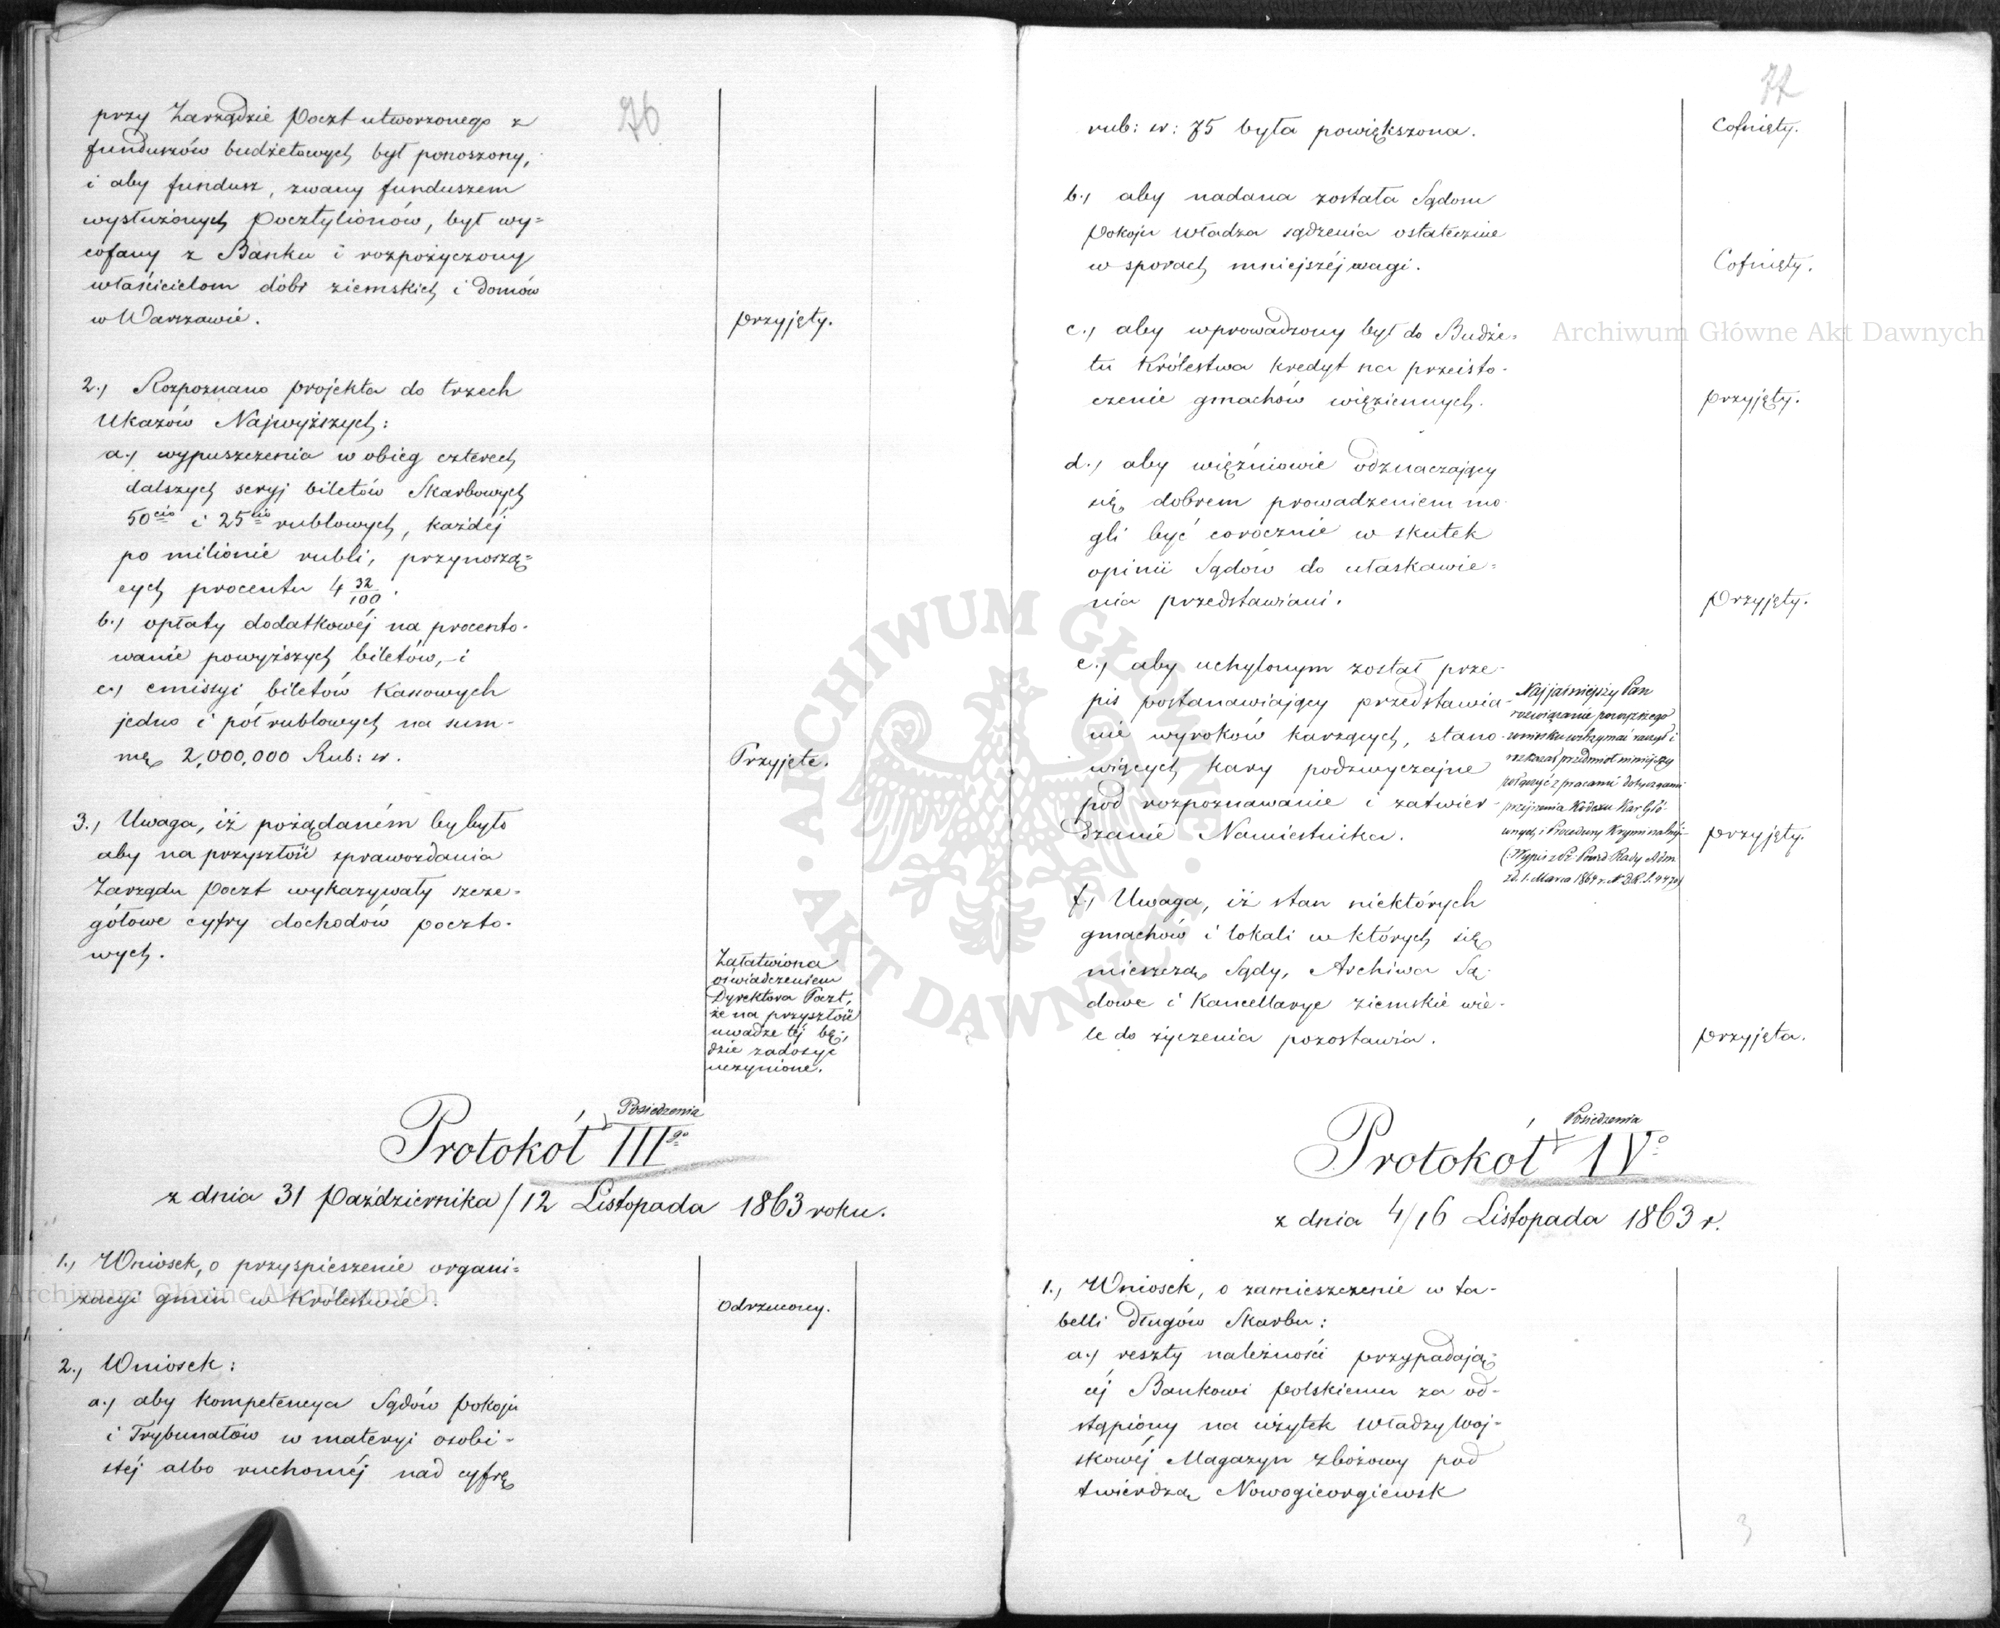 76
przy Zarządzie Poczt utworzonego z
funduszów budżetowych był ponoszony,
i aby fundusz, zwany funduszem
wysłużonych Pocztylionów, był wy=
cofany z Banku i rozpożyczony
właścicielom dóbr ziemskich i domów
w Warszawie.
przyjęty.
2.) Rozpoznano projekta do trzech
Ukazów Najwyższych:
a.) wypuszczenia w obieg czterech
dalszych seryj biletów Skarbowych
50cio i 25cio rublowych, każdéj
po milionie rubli, przynoszą=
cych procentu 4 32/100.
b.) opłaty dodatkowéj na procento-
wanie powyższych biletów, i
c.) emissyi biletów Kassowych
jedno i pół rublowych na sum-
mę 2,000,000 Rub: sr.
Przyjęte.
3.) Uwaga, iż pożądaném by było
aby na przyszłość sprawozdania
Zarządu Poczt wykazywały szcze-
gółowe cyfry dochodów poczto-
wych.
Załatwiona
oświadczeniem
Dyrektora Poczt,
że na przyszłość
uwadze téj bę-
dzie zadosyć
uczynione.
Protokół Posiedzenia IIIgo
z dnia 31 Października/12 Listopada 1863 roku.
1.) Wniosek, o przyspieszenie organi=
zacyi gmin w Królestwie.
Odrzucony.
2.) Wniosek:
a.) aby kompetencya Sądów pokoju
i Trybunałów w materyi osobi-
stéj albo ruchoméj nad cyfrę
77
rub: sr: 75 była powiększona.
Cofnięty.
b.) aby nadana została Sądom
Pokoju władza sądzenia ostatecznie
w sporach mniejszéj wagi.
Cofnięty.
c.) aby wprowadzony był do Budże-
tu Królestwa kredyt na przeisto-
czenie gmachów więziennych.
przyjęty.
d.) aby więźniowie odznaczający
się dobrem prowadzeniem mo-
gli być corocznie w skutek
opinii Sądów do ułaskawie=
nia przedstawiani.
Przyjęty.
e.) aby uchylonym został prze-
pis postanawiający przedstawia-
nie wyroków karzących, stano-
wiących kary podzwyczajne
pod rozpoznawanie i zatwier-
dzanie Namiestnika.
Najjaśniejszy Pan
rozwiązanie powyższego
wniosku wstrzymać raczył i
rozkazał przedmiot niniejszy
połączyć z pracami dotyczącemi
przejrzenia Kodexu Kar Głó-
wnych i Procedury Kryminalnéj
(Wypis z Pr. Posied. Rady Adm
zd. 1. Marca 1864 r. N. D.R.S. 4470)
przyjęty.
f.) Uwaga, iż stan niektórych
gmachów i lokali w których się
mieszczą Sądy, Archiwa Są-
dowe i Kancellarye ziemskie wie-
le do życzenia pozostawia.
przyjęta.
Protokół Posiedzenia IVo
z dnia 4/16 Listopada 1863 r.
1.) Wniosek, o zamieszczenie w ta-
belli długów Skarbu:
a.) reszty należności przypadają-
céj Bankowi Polskiemu za od-
stąpiony na użytek Władzy Woj-
skowéj Magazyn zbożowy pod
twierdzą Nowogieorgiewsk
3
Archiwum Główne Akt Dawnych
Archiwum Główne Akt Dawnych
ARCHIWUM GŁÓWNE AKT DAWNYCH